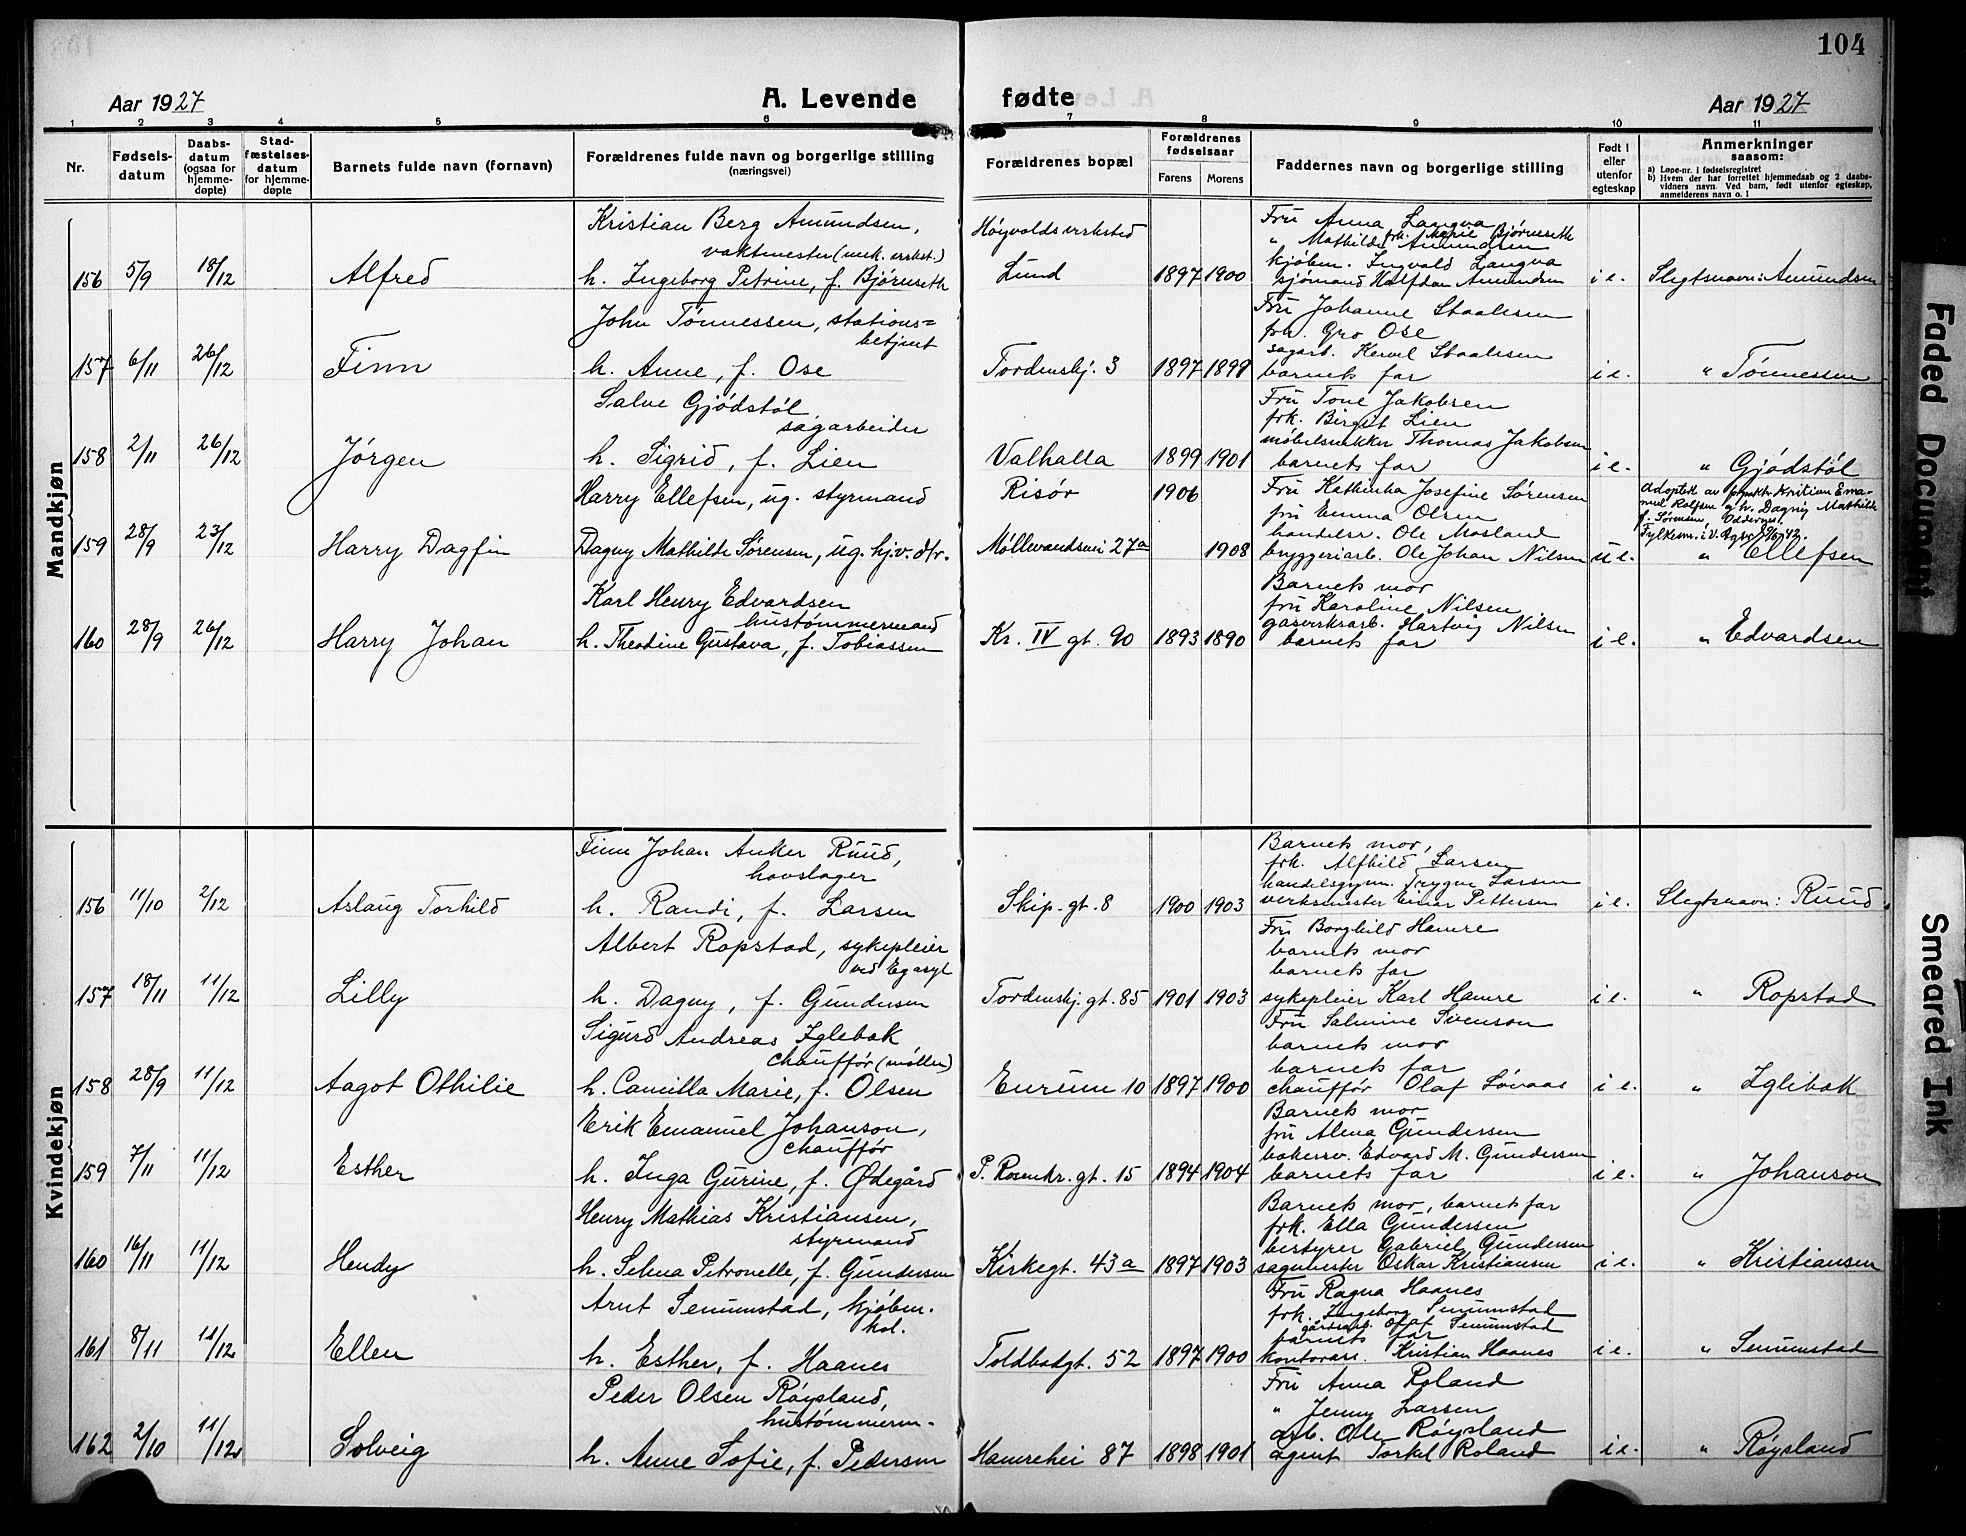 104
Aar 1927
A. Levende fødte
Aar 1927
1 2 3 4 5 6 7 8 9 10 11
Nr.
Fødsels-
datum
Daabs-
datum
(ogsaa for
hjemme-
døpte)
Stad-
fæstelses-
datum
for hjemme-
døpte
Barnets fulde navn (fornavn)
Forældrenes fulde navn og borgerlige stilling
(næringsvei)
Forældrenes bopæl
Forældrenes
fødselsaar
Farens Morens
Faddernes navn og borgerlige stilling
Født i
eller
utenfor
egteskap
Anmerkninger
saasom:
a) Løpe-nr. i fødselsregistret
b) Hvem der har forrettet hjemmedaab og 2 daabs-
vidners navn. Ved barn, født utenfor egteskap,
anmelderens navn o. l
Mandkjøn
156 5/9 18/12 Alfred
Kristian Berg Amundsen,
vaktmester (mek. verkst.)
h. Ingeborg Petrine, f. Bjørnseth
Høyvolds verksted
Lund
1897 1900
Fru Anna Langva
frk. Marie Bjørnseth
" Mathilde Amundsen
kjøbm. Ingvald Langva
sjømand Halfdan Amundsen
i e.
Slegtsnavn: Amundsen
157 6/11 26/12 Finn
John Tønnessen, stations=
betjent
h. Anne, f. Ose
Tordenskj. 3
1897 1899
Fru Johanne Staalesen
frk. Gro Ose
sagarb. Kervel Staalesen
barnets far
i e.
" Tønnessen
158 2/11 26/12 Jørgen
Salve Gjødstøl,
sagarbeider
h. Sigrid, f. Lien
Valhalla
1899 1901
Fru Tone Jakobsen
frk. Birgit Lien
møbelsnekker Thomas Jakobsen
barnets far
i e.
" Gjødstøl
159 28/9 23/12 Harry Dagfin
Harry Ellefsen, ug. styrmand
Dagny Mathilde Sørensen, ug. hj.v. dtr.
Risør
Møllevandsvei 27a
1906
1908
Fru Kathinka Josefine Sørensen
fru Emma Olsen
handelsr. Ole Mosland
bryggeriarb. Ole Johan Nilsen
u e.
Adoptert av Kristian Ema-
nuel Rolfsen og h. Dagny Mathilde
f. Sørensen, Oddernes.
Fylkesm. i V. Agder 42.
" Ellefsen
160 28/9 26/12 Harry Johan
Karl Henry Edvardsen
hustømmermand
h. Theodine Gustava, f. Tobiassen
Kr. IV gt. 90
1893 1890
Barnets mor
fru Karoline Nilsen
gasverksarb. Hartvig Nilsen
barnets far
i e.
" Edvardsen
Kvindekjøn
156 11/10 2/12 Aslaug Torhild
Finn Johan Anker Ruud,
hovslager
h. Randi, f. Larsen
Skip.gt. 8
1900 1903
Barnets mor,
frk. Alfhild Larsen
handelsgym. Trygve Larsen
verksmester Einar Pettersen
i e.
Slegtsnavn: Ruud
157 18/11 11/12 Lilly
Albert Ropstad, sykepleier
ved Eg asyl
h. Dagny, f. Gundersen
Tordenskj. gt. 85
1901 1903
Fru Borghild Hamre
barnets mor
barnets far
sykepleier Karl Hamre
i e.
" Ropstad
158 28/9 11/12 Aagot Othilie
Sigurd Andreas Iglebæk
chauffør (møllen)
h. Camilla Marie, f. Olsen
Enrum 10
1897 1900
Fru Salmine Svenson
barnets mor
barnets far
chauffør Olaf Løvaas
i e.
" Iglebæk
159 7/11 11/12 Esther
Erik Emanuel Johanson,
chauffør
h. Inga Gurine, f. Ødegård
P. Rosenkr. gt. 15
1894 1904
Barnets mor
fru Alma Gundersen
bakersv. Edvard M. Gundersen
barnets far
i e.
" Johanson
160 16/11 11/12 Hendy
Henry Mathias Kristiansen,
styrmand
h. Selma Petronelle, f. Gundersen
Kirkegt. 43 a
1897 1903
Barnets mor, barnets far
frk. Ella Gundersen
bestyrer Gabriel Gundersen
sagmester Oskar Kristiansen
i e.
" Kristiansen
161 8/11 11/12 Ellen
Arnt Senumstad, kjøbm.
kol.
h. Esther, f. Haanes
Toldbodgt. 52
1897 1900
Fru Ragna Haanes
frk. Ingeborg Senumstad
gårdsarb. Olaf Senumstad
barnets far
kontorass. Kristian Haanes
i e.
" Senumstad
162 2/10 11/12 Solveig
Peder Olsen Røysland,
hustømmerm.
h. Anne Sofie, f. Pedersen
Hamrehei 87
1898 1901
Fru Anna Roland
" Jenny Larsen
arb. Ole Røysland
agent Torkel Roland
i e.
" Røysland
Faded Document
Smeared Ink